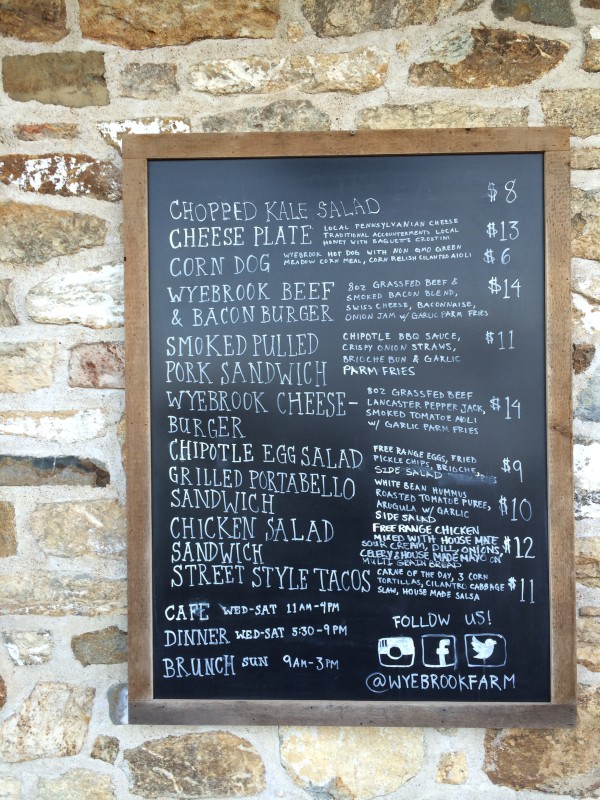 CHOPPED KALE SALAD $8
CHEESE PLATE LOCAL PENNSYLVANIAN CHEESE $13
TRADITIONAL ACCOUNTERMENTS LOCAL
HONEY WITH BAGUETTE CROSTINI
CORN DOG WYEBROOK HOT DOG WITH NON GMO GREEN $6
MEADOW CORN MEAL, CORN RELISH CILANTRO AIOLI
WYEBROOK BEEF 8OZ GRASSFED BEEF & $14
& BACON BURGER SMOKED BACON BLEND,
SWISS CHEESE, BACONNAISE,
ONION JAM W/ GARLIC PARM FRIES
SMOKED PULLED CHIPOTLE BBQ SAUCE, $11
PORK SANDWICH CRISPY ONION STRAWS,
BRIOCHE BUN & GARLIC
PARM FRIES
WYEBROOK CHEESE- 8OZ GRASSFED BEEF $14
BURGER LANCASTER PEPPER JACK,
SMOKED TOMATOE AIOLI
W/ GARLIC PARM FRIES
CHIPOTLE EGG SALAD FREE RANGE EGGS, FRIED $9
PICKLE CHIPS, BRIOCHE,
SIDE SALAD
GRILLED PORTABELLO WHITE BEAN HUMMUS $10
SANDWICH ROASTED TOMATOE PUREE,
ARUGULA W/ GARLIC
SIDE SALAD
CHICKEN SALAD FREE RANGE CHICKEN $12
SANDWICH MIXED WITH HOUSE MADE
SOUR CREAM, DILL, ONIONS,
CELERY & HOUSE MADE MAYO ON
MULTI GRAIN BREAD
STREET STYLE TACOS CARNE OF THE DAY, 3 CORN $11
TORTILLAS, CILANTRO CABBAGE
SLAW, HOUSE MADE SALSA
CAFE WED-SAT 11AM-4PM
DINNER WED-SAT 5:30-9PM
BRUNCH SUN 9AM-3PM
FOLLOW US!
f
@WYEBROOKFARM